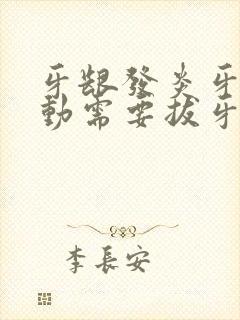 牙龈發炎牙
動需要拔牙
李長安